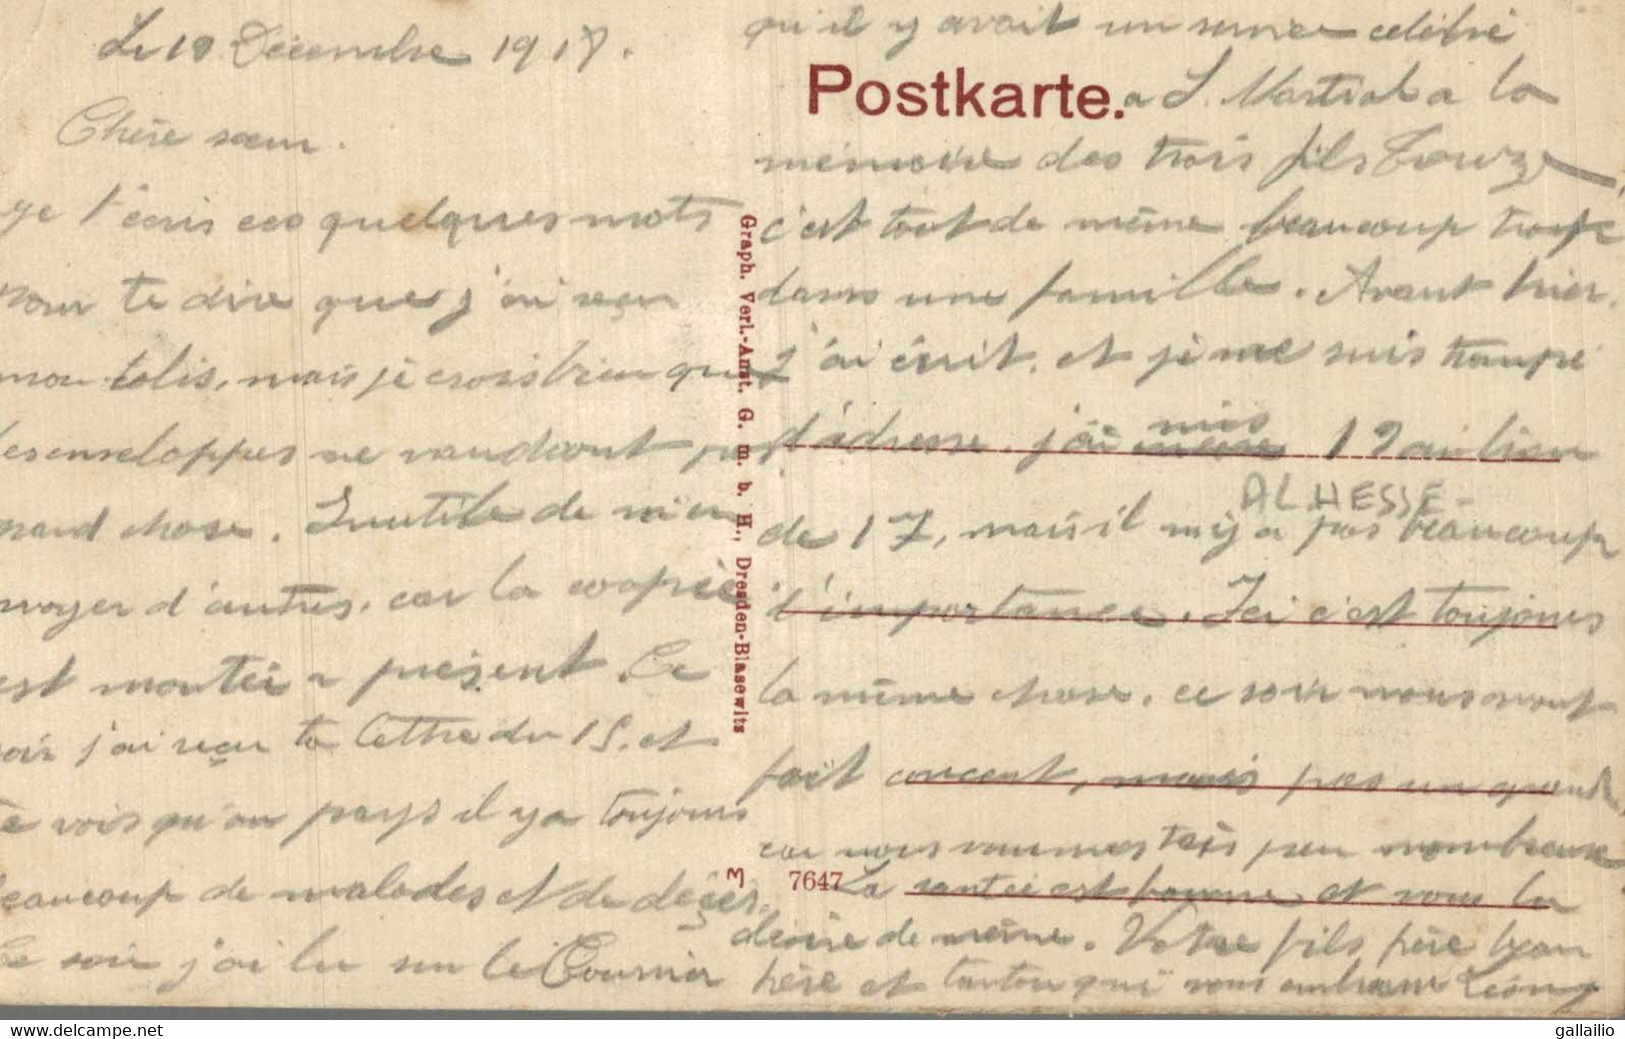 Le 19 Décembre 1918.
Chère sœur.
Je t'écris ces quelques mots
pour te dire que j'ai reçu
mon colis, mais je crois bien que
les enveloppes ne vaudront pas
grand chose. Inutile de m'en
envoyer d'autres, car la coopée
est montée a présent. Ce
soir j'ai reçu ta lettre du 15. et
je vois qu'au pays il y a toujours
beaucoup de malades et de décès.
Ce soir j'ai lu sur le Courrier
qu'il y avait un service célébré
Postkarte.
a S. Martial a la
mémoire des trois fils
c'est tout de même beaucoup trop
dans une famille. Avant hier
j'ai écrit, et je me suis trompé
d'adresse. j'ai mis 19 au lieu
ALHESSE-
de 17, mais il n'y a pas beaucoup
d'importance. Ici c'est toujours
la même chose, ce soir nous avons
fait concert, mais pas un grand,
car nous sommes très peu nombreux
La santée est bonne et vous la
désire de même. Votre fils frère
frère et tonton qui vous embrasse Léon
Graph. Verl.-Anst. G. m. b. H., Dresden-Blasewits
M 7647
https://www.delcampe.net
gallailio